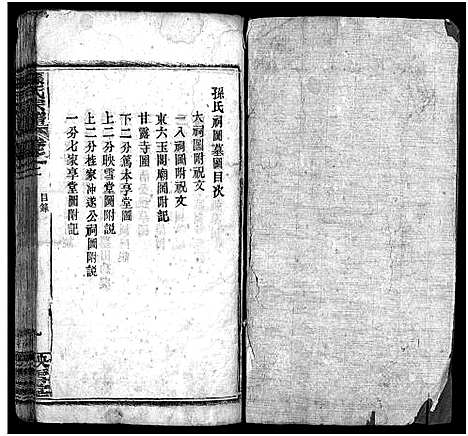 孫氏祠圖墓圖目次
大祠圖附祝文
一八祠圖附祝文
東六玉閣廟圖附記
甘露寺圖
下二分篤本享堂圖
上二分映雪堂圖附說
上二分桂家沖遂公祠圖附說
一分七家享堂圖附記
目錄